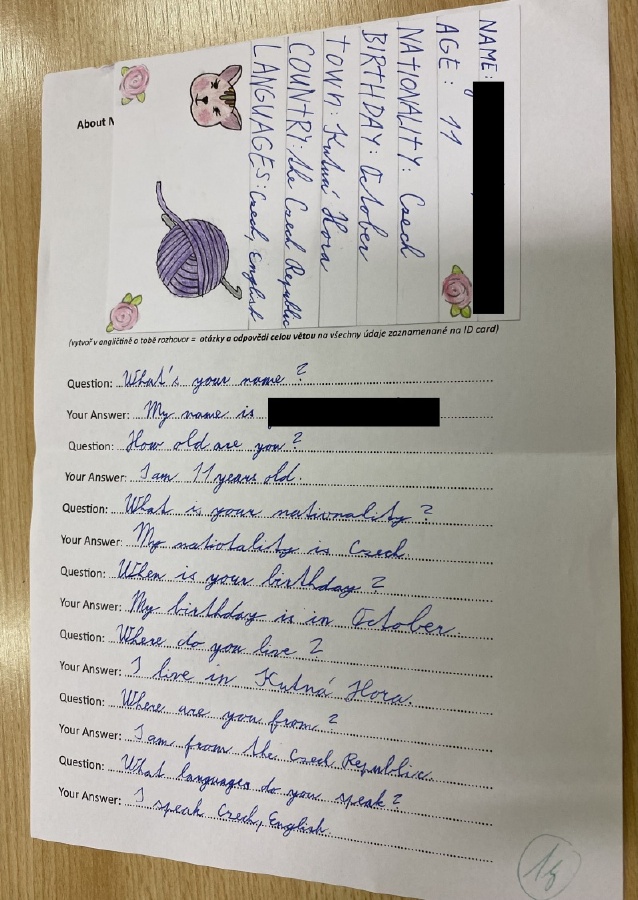 NAME:
AGE: 11
NATIONALITY: Czech
BIRTHDAY: October
TOWN: Kutná Hora
COUNTRY: the Czech Republic
LANGUAGES: Czech, English
About M
(vytvoř v angličtině o tobě rozhovor = otázky a odpovědi celou větou na všechny údaje zaznamenané na ID card)
Question: What's your name?
Your Answer: My name is
Question: How old are you?
Your Answer: I am 11 years old.
Question: What is your nationality?
Your Answer: My natiotality is Czech.
Question: When is your birthday?
Your Answer: My birthday is in October.
Question: Where do you live?
Your Answer: I live in Kutná Hora.
Question: Where are you from?
Your Answer: I am from the Czech Republic.
Question: What languages do you speak?
Your Answer: I speak Czech, English.